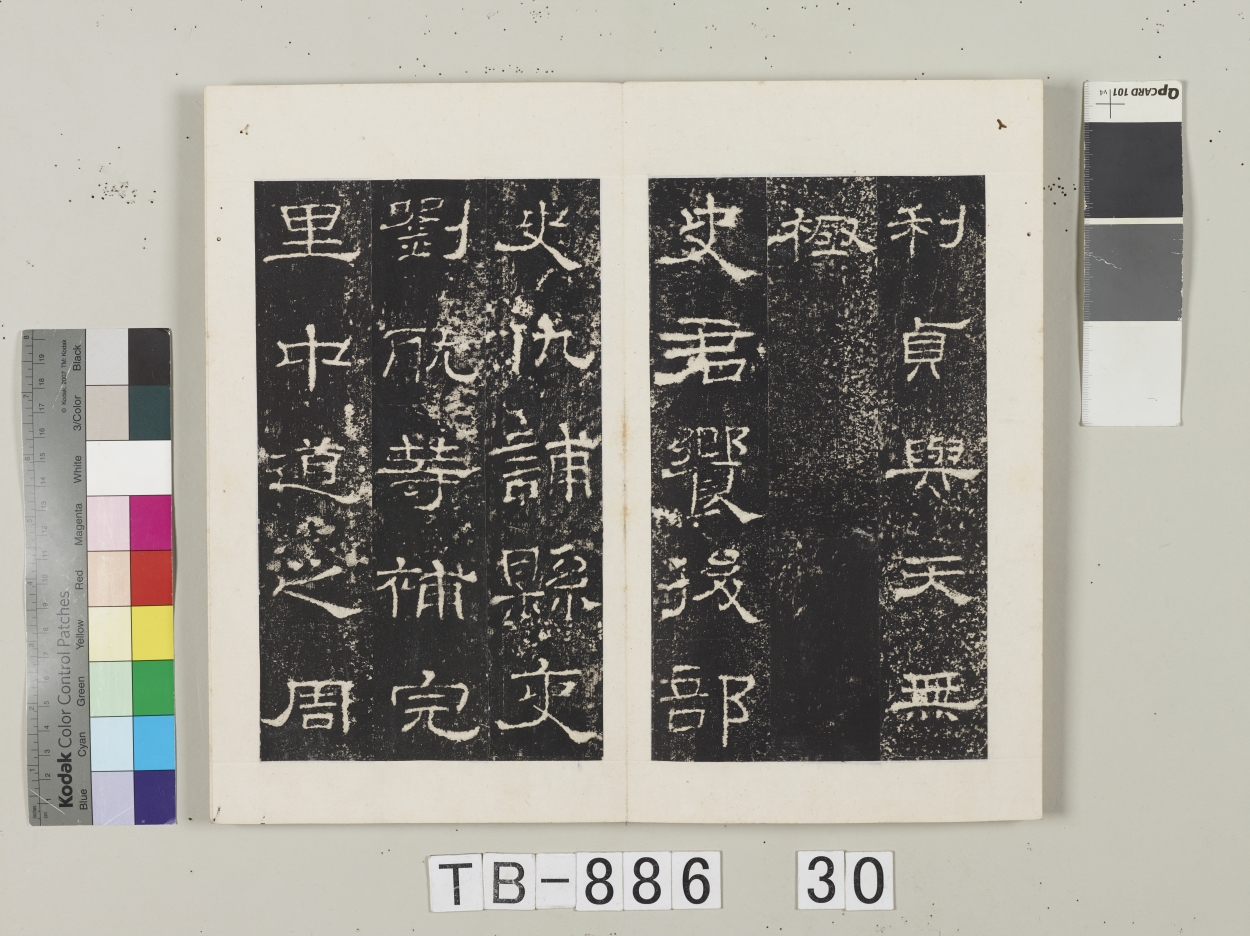 利貞與天無
極
史君饗後部
史仇誧縣吏
劉耽等補完
里中道之周
QPCARD 101 v4
Kodak Color Control Patches
© Kodak, 2007 TM: Kodak
Blue Cyan Green Yellow Red Magenta White 3/Color Black
TB-886 30